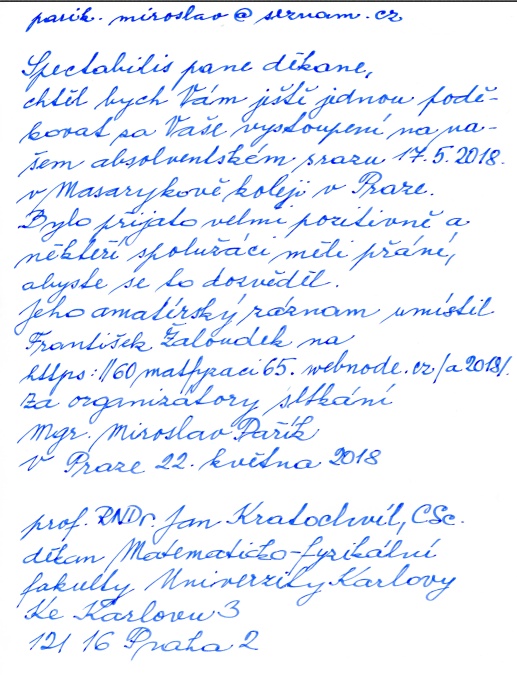 parik.miroslav@seznam.cz
Spectabilis pane děkane,
chtěl bych Vám ještě jednou podě-
kovat za Vaše vystoupení na na-
šem absolventském srazu 17.5.2018.
v Masarykově koleji v Praze.
Bylo přijato velmi pozitivně a
někteří spolužáci měli přání,
abyste se to dozvěděl.
Jeho amatérský záznam umístil
František Žaloudek na
https://60matfyzaci65.webnode.cz/a2018/.
Za organizátory setkání
Mgr. Miroslav Pařík
V Praze 22. května 2018
prof. RNDr. Jan Kratochvíl, CSc.
děkan Matematicko-fyzikální
fakulty Univerzity Karlovy
Ke Karlovu 3
121 16 Praha 2